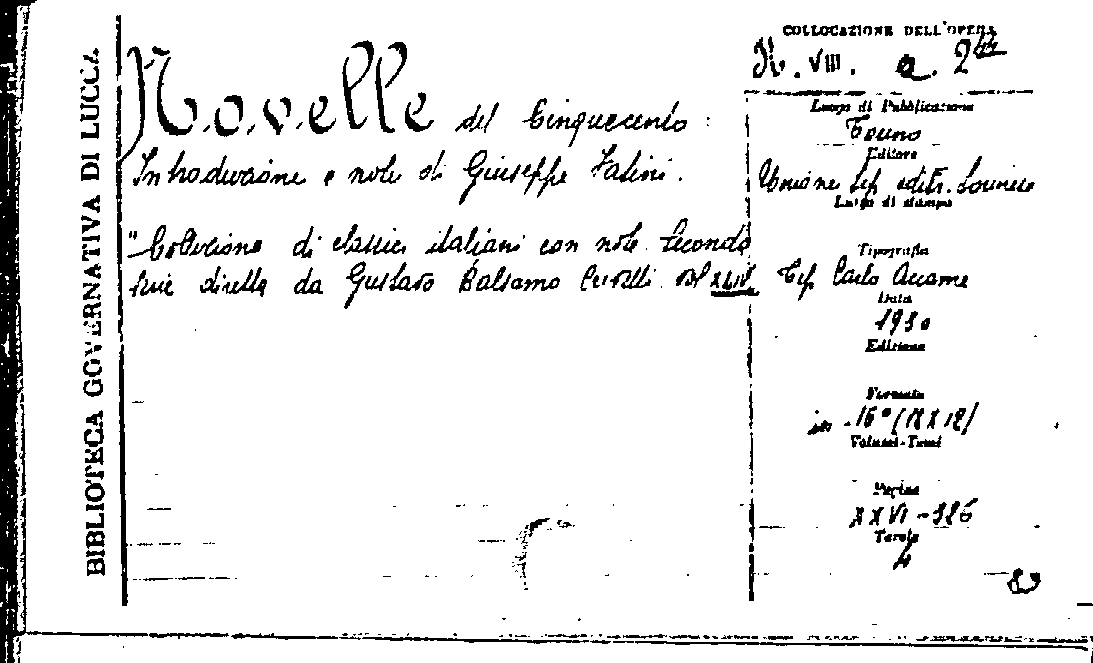 BIBLIOTECA GOVERNATIVA DI LUCCA
Novelle del Cinquecento :
Introduzione e note di Giuseppe Fatini.
"Collezione di classici italiani con note. Seconda
serie diretta da Gustavo Balsamo Crivelli. Vol XLIV
COLLOCAZIONE DELL'OPERA
N. VIII. a. 244
Luogo di Pubblicazione
Torino
Editore
Unione tip. editr. torinese
Luogo di stampa
Tipografia
Tip Carlo Accame
Data
1930
Edizione
Formato
in -16° (18 X 12)
Volumi-Tomi
Pagine
XXVI - 326
Tavole
4